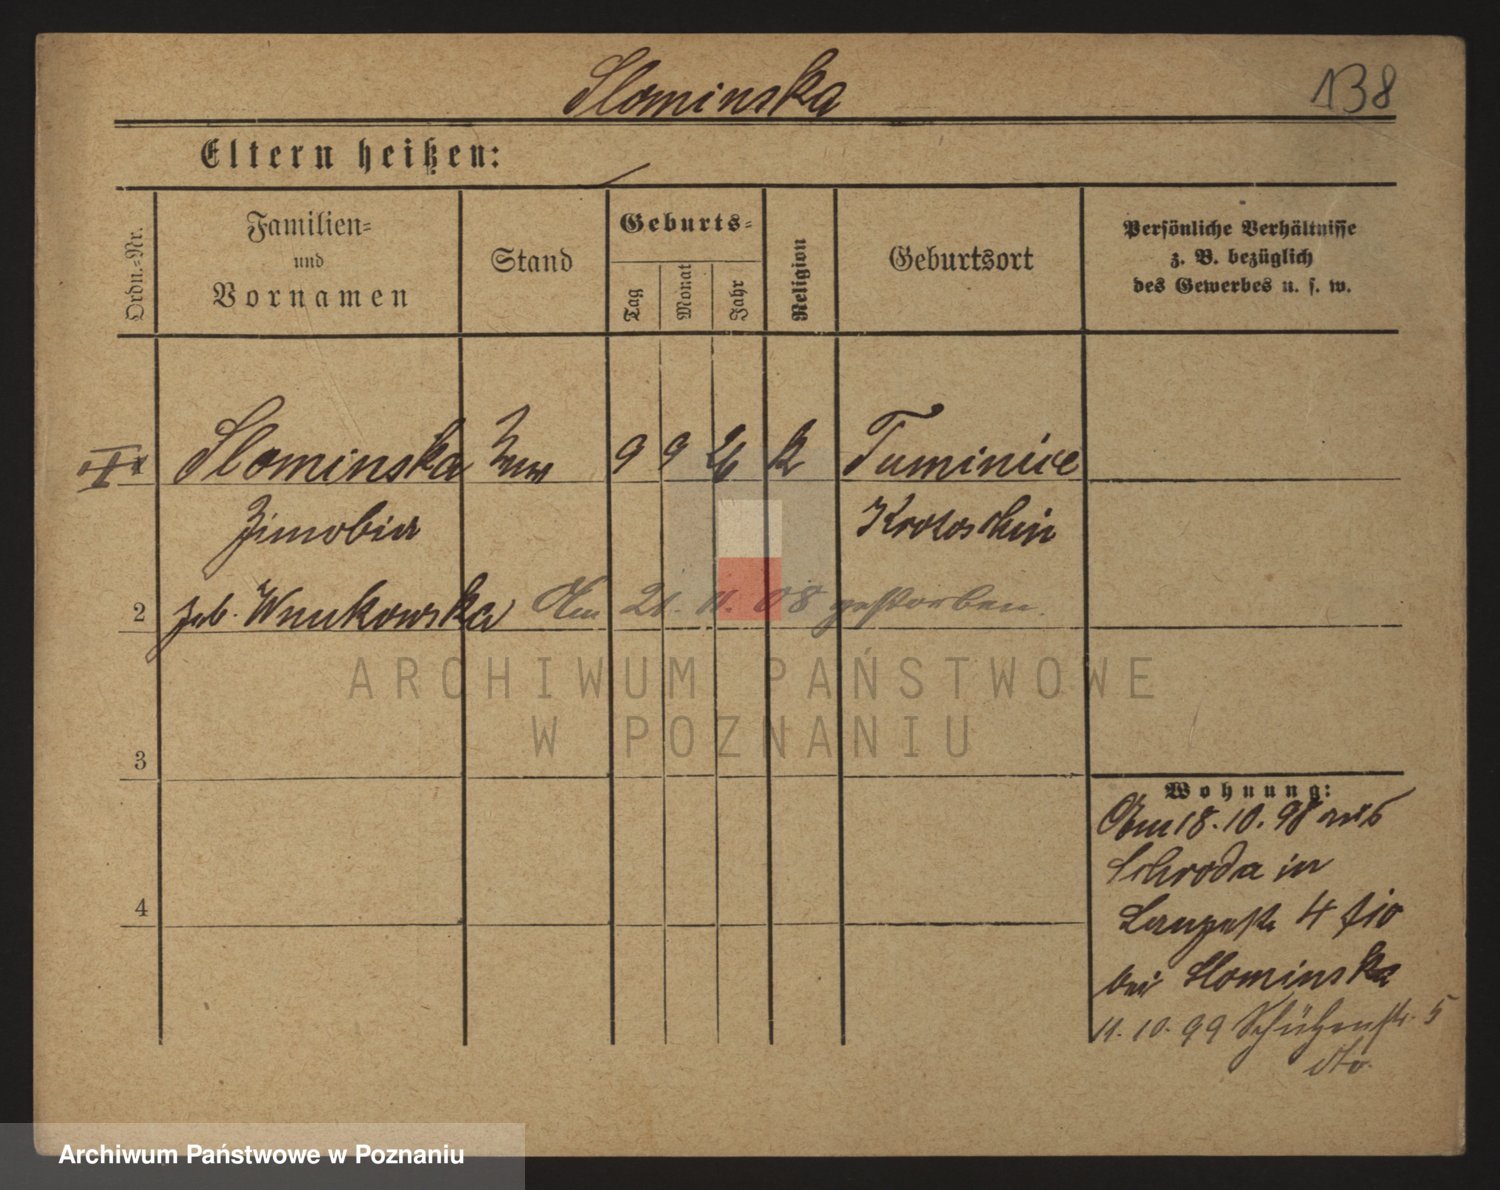 Slominska 138
Eltern heißen:
Ordn.-Nr.
Familien-
und
Vornamen
Stand
Geburts-
Tag Monat Jahr
Religion
Geburtsort
Persönliche Verhältnisse
z. B. bezüglich
des Gewerbes u. s. w.
Slominska 9 9 26 k
Zinobia Krotoschin
2 geb. Wnukowska Am 21. 11. 08 gestorben.
ARCHIWUM PAŃSTWOWE
W POZNANIU
3
Wohnung:
Am 18. 10. 98 aus
Schroda in
4
4
bei Slominska
11. 10. 99 Schützenstr. 5
dto.
Archiwum Państwowe w Poznaniu